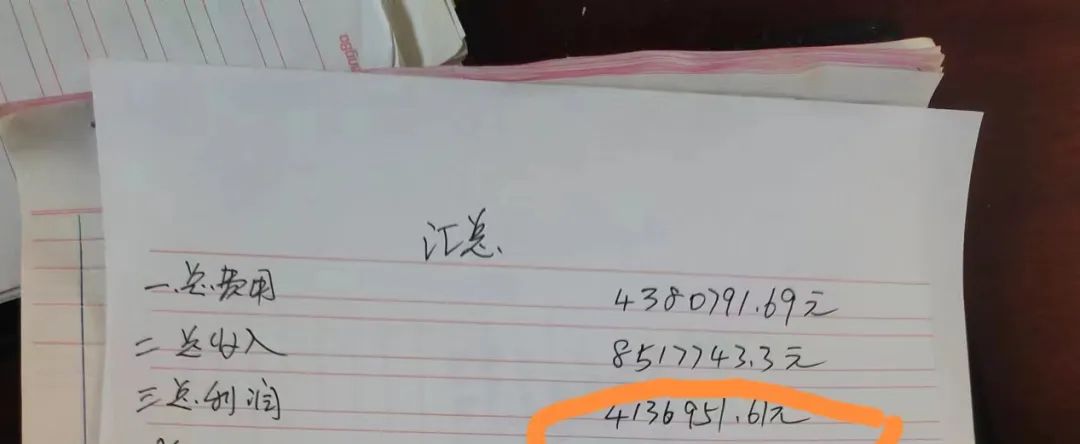 汇总
一.总费用 4380791.69元
二 总收入 8517743.3元
三 总利润 4136951.61元